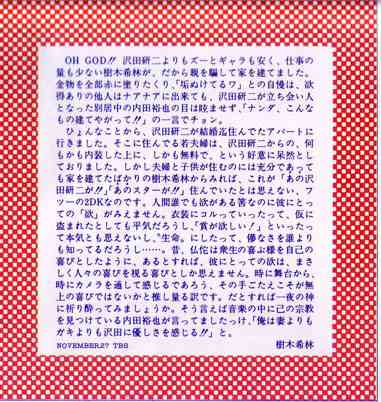 OH GOD!! 沢田研二よりもズーとギャラも安く、仕事の
量も少ない樹木希林が、だから親を騙して家を建てました。
金物を全部赤に塗りたくり、「垢ぬけてるワ」との自慢は、欲
得ありの他人はナアナアに出来ても、沢田研二が立ち会い人
となった別居中の内田裕也の目は眩ませず、「ナンダ、こんな
もの建てやがって!!」の一言でチョン。
ひょんなことから、沢田研二が結婚迄住んでたアパートに
行きました。そこに住んでる若夫婦は、沢田研二からの、何
もかも内装した上に、しかも無料で、という好意に呆然とし
ておりました。しかし夫婦と子供が住むのには充分であって
も家を建てたばかりの樹木希林からみれば、これが「あの沢
田研二が!!」「あのスターが!!」住んでいたとは思えない、フ
ツーの2DKなのです。人間誰でも欲がある筈なのに彼にとっ
ての「欲」がみえません。衣装にコルっていったって、仮に
盗まれたとしても平気だろうし、「賞が欲しい!」といったっ
て本気とも思えないし、“生命〟にしたって、儚なさを誰より
も知ってるだろうし……。昔、仏陀は衆生の喜ぶ様を自己の
喜びとしたように、あるとすれば、彼にとっての欲は、まさ
しく人々の喜びを視る喜びとしか思えません。時に舞台から、
時にカメラを通して感じるであろう、その手ごたえこそが無
上の喜びではないかと推し量る訳です。だとすれば一夜の神
に祈り酔ってみましょうか。そう言えば音楽の中に己の宗教
を見つけている内田裕也が言ってましたっけ、「俺は妻よりも
ガキよりも沢田に優しさを感じる!!」と。
NOVEMBER27 TBS 樹木希林